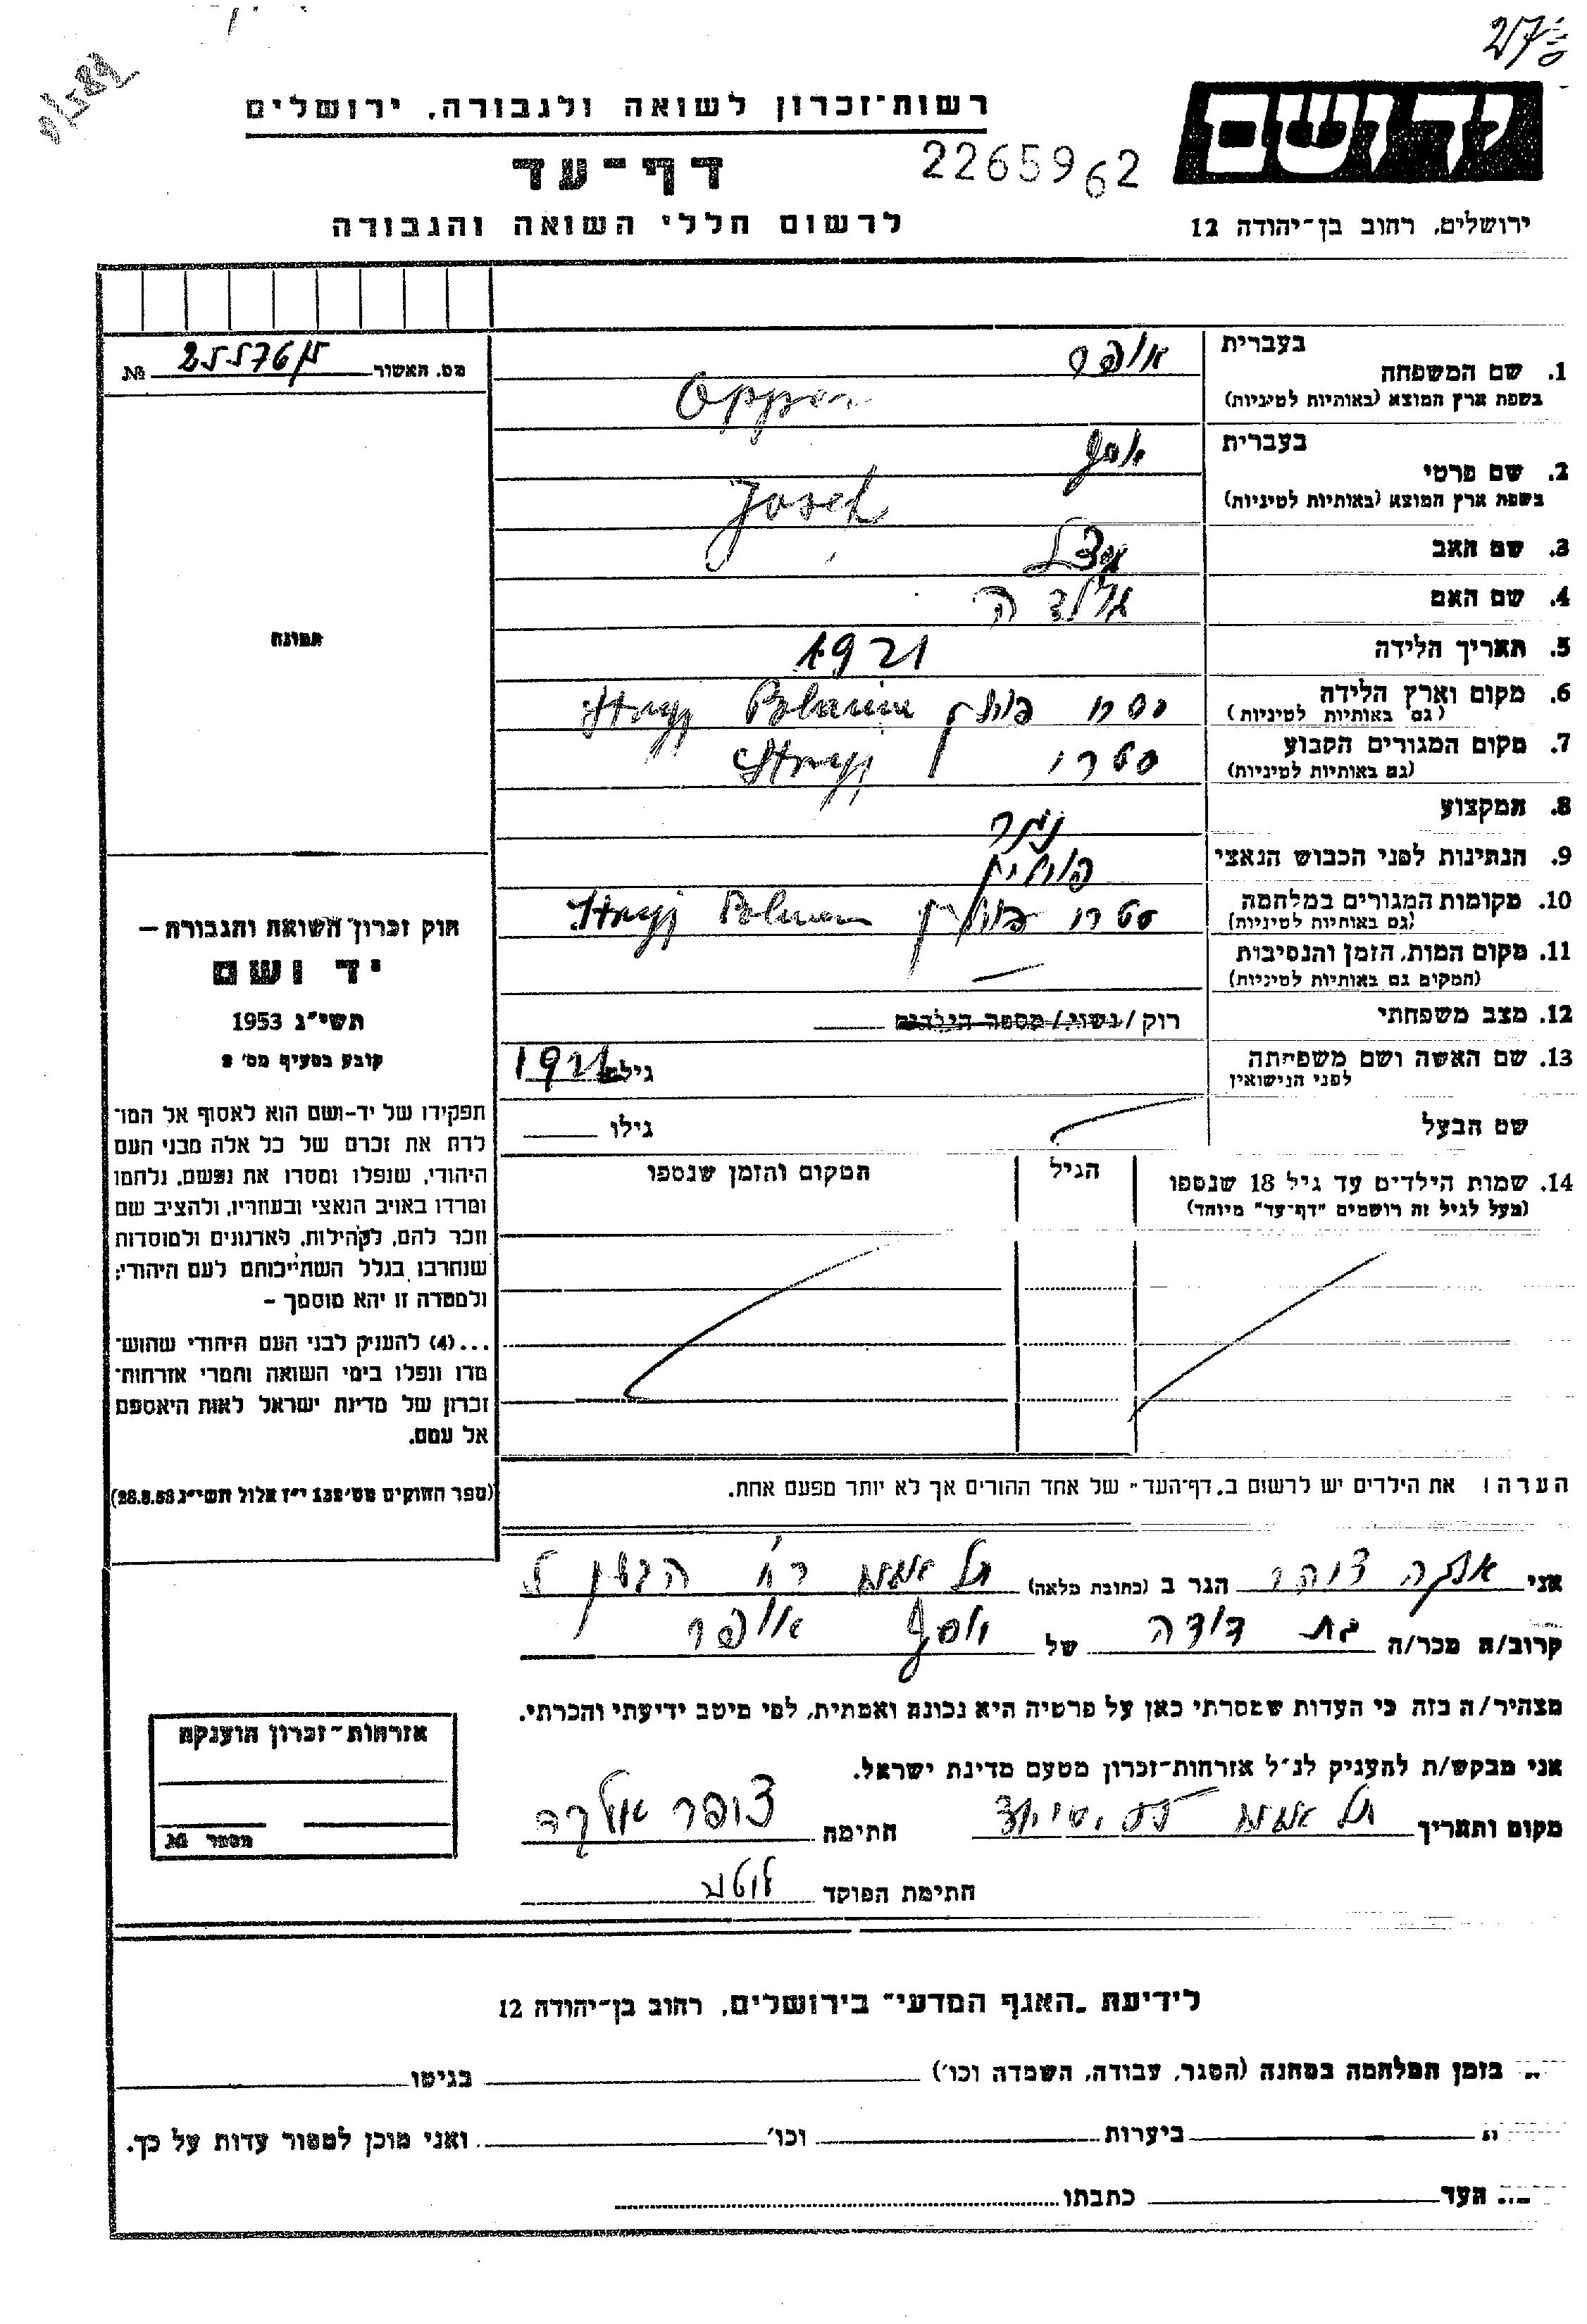 יד ושם
רשות־זכרון לשואה ולגבורה, ירושלים
2265962
דף־עד
ירושלים, רחוב בן־יהודה 12
לרשום חללי השואה והגבורה
מס. האשור № 25576
1. שם המשפחה
בעברית אופר
בשפת ארץ המוצא (באותיות לטיניות) Opper
2. שם פרטי
בעברית יוסף
בשפת ארץ המוצא (באותיות לטיניות) Josef
3. שם האב
4. שם האם
5. תאריך הלידה 1921
6. מקום וארץ הלידה פולין Stryj
(גם באותיות לטיניות)
7. מקום המגורים הקבוע סטרי Stryj
(גם באותיות לטיניות)
8. המקצוע
9. הנתינות לפני הכבוש הנאצי
10. מקומות המגורים במלחמה סטרי פולין Stryj
(גם באותיות לטיניות)
11. מקום המות, הזמן והנסיבות —
(המקום גם באותיות לטיניות)
12. מצב משפחתי רוק / נשוי / מספר הילדים
13. שם האשה ושם משפחתה גילה 1921
לפני הנישואין
שם הבעל גילו
14. שמות הילדים עד גיל 18 שנספו הגיל המקום והזמן שנספו
(מעל לגיל זה רושמים "דף־עד" מיוחד)
הערה: את הילדים יש לרשום ב„דף־העד" של אחד ההורים אך לא יותר מפעם אחת.
תמונה
חוק זכרון השואה והגבורה —
יד ושם
תשי"ג 1953
קובע בסעיף מס' 2
תפקידו של יד-ושם הוא לאסוף אל המו־
לדת את זכרם של כל אלה מבני העם
היהודי, שנפלו ומסרו את נפשם, נלחמו
ומרדו באויב הנאצי ובעוזריו, ולהציב שם
וזכר להם, לקהילות, לארגונים ולמוסדות
שנחרבו בגלל השתייכותם לעם היהודי;
ולמטרה זו יהא מוסמך –
...(4) להעניק לבני העם היהודי שהוש־
מדו ונפלו בימי השואה והמרי אזרחות־
זכרון של מדינת ישראל לאות היאספם
אל עמם.
(ספר החוקים מס' 132 י"ז אלול תשי"ג 28.8.53)
אני הגר ב (כתובת מלאה) תל
קרוב/ה מכר/ה בת דודה של יוסף אופר
מצהיר/ה בזה כי העדות שמסרתי כאן על פרטיה היא נכונה ואמתית, לפי מיטב ידיעתי והכרתי.
אני מבקש/ת להעניק לנ"ל אזרחות־זכרון מטעם מדינת ישראל.
מקום ותאריך תל חתימה
חתימת הפוקד
אזרחות־זכרון הוענקה
מספר №
לידיעת „האגף המדעי" בירושלים, רחוב בן־יהודה 12
בזמן המלחמה במחנה (הסגר, עבודה, השמדה וכו') בגיטו
ביערות וכו' ואני מוכן למסור עדות על כך.
העד כתבתו